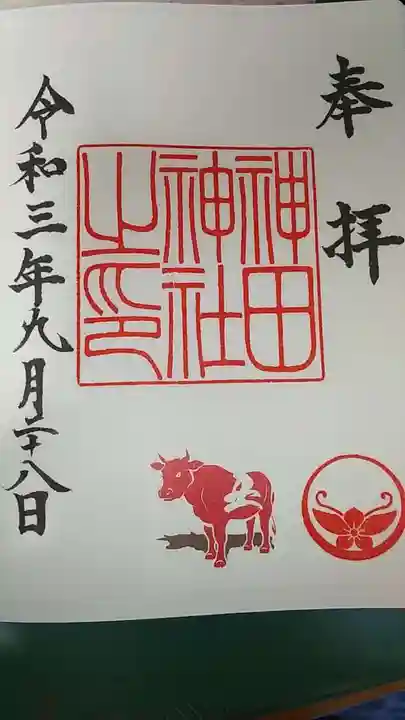 奉拝
神田
神社
之印
令和三年九月二十八日